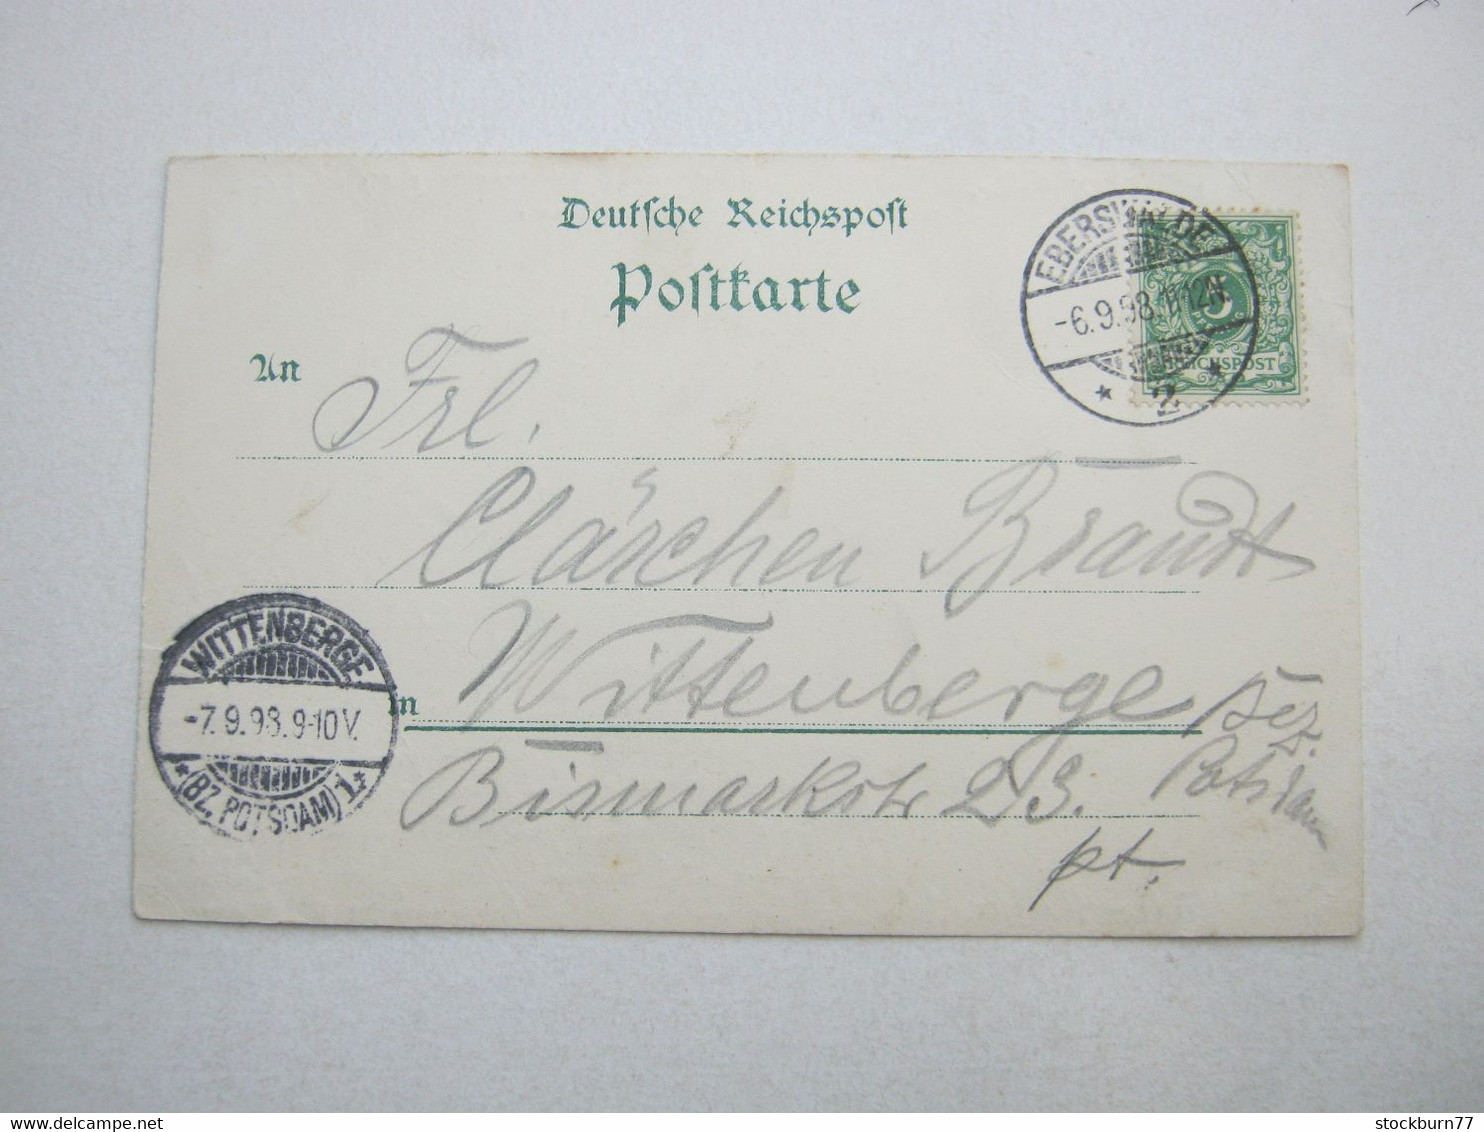 Deutsche Reichspost
Postkarte
EBERSWALDE
-6.9.98.11-12N.
* 2 *
5
REICHSPOST
An
Frl.
Clärchen Brandt
WITTENBERGE
-7.9.98.9-10V.
*(BZ. POTSDAM) 1*
in
Wittenberge Bez.
Potsdam
Bismarkstr 23.
pt.
stockburn77